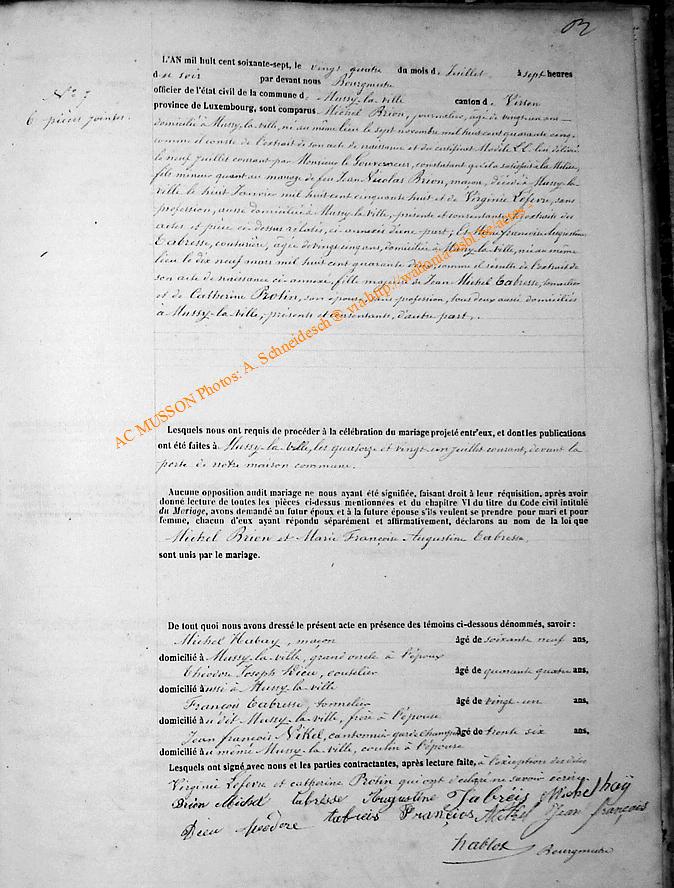 L'AN mil huit cent soixante-sept, le vingt quatre du mois d e Juillet à sept heures
d u soir par devant nous Bourgmestre
officier de l'état civil de la commune d e Mussy-la-ville canton d e Virton
province de Luxembourg, sont comparus Michel Brion, journalier, âgé de vingt un ans
N° 7
6 pièces jointes.
domicilié à Mussy-la-ville, né au même lieu le sept novembre mil huit cent quarante cinq,
comme il conste de l'extrait de son acte de naissance et du certificat Modèle LL lui délivré
le neuf juillet courant par Monsieur le Gouverneur, constatant qu'il a satisfait à la Milice,
fils mineur quant au mariage de feu Jean Nicolas Brion, maçon, décédé à Mussy-la-
ville le huit Janvier mil huit cent cinquante huit et de Virginie Lefevre, sans
profession, aussi domiciliée à Mussy-la-ville, présente et consentante, extraits des
actes et pièce ci-dessus relatés, ci-annexés d'une part, Et Marie Françoise Augustine
Tabresse, couturière, âgée de vingt cinq ans, domiciliée à Mussy-la-ville, née au même
lieu le dix neuf mars mil huit cent quarante deux, comme il résulte de l'extrait de
son acte de naissance ci-annexé, fille majeure de Jean Michel Tabresse, tonnelier
et de Catherine Protin, son épouse, sans profession, tous deux aussi domiciliés
à Mussy-la-ville, présents et consentants, d'autre part.
AC MUSSON Photos: A. Schneidesch @ via http://wallonia-asbl.be-actes
Lesquels nous ont requis de procéder à la célébration du mariage projeté entr'eux, et dont les publications
ont été faites à Mussy-la-ville, les quatorze et vingt-un juillet courant, devant la
porte de notre maison commune.
Aucune opposition audit mariage ne nous ayant été signifiée, faisant droit à leur réquisition, après avoir
donné lecture de toutes les pièces ci-dessus mentionnées et du chapitre VI du titre du Code civil intitulé
du Mariage, avons demandé au futur époux et à la future épouse s'ils veulent se prendre pour mari et pour
femme, chacun d'eux ayant répondu séparément et affirmativement, déclarons au nom de la loi que
Michel Brion et Marie Françoise Augustine Tabresse,
sont unis par le mariage.
De tout quoi nous avons dressé le présent acte en présence des témoins ci-dessous dénommés, savoir :
Michel Hubay, maçon âgé de soixante neuf ans,
domicilié à Mussy-la-ville, grand oncle à l'époux
Théodore Joseph Dieu, coutelier âgé de quarante quatre ans,
domicilié aussi à Mussy-la-ville
François Tabresse, tonnelier âgé de vingt-un ans,
domicilié au dit Mussy-la-ville, frère à l'épouse
Jean françois Nikel, cantonnier garde champêtre âgé de trente six ans,
domicilié au même Mussy-la-ville, cousin à l'épouse
Lesquels ont signé avec nous et les parties contractantes, après lecture faite, à l'exception des dites
Virginie Lefevre et catherine Protin qui ont déclaré ne savoir écrire
Brion Michel tabresse Augustine Michel
Dieu théodore François Jean françois
Bourgmestre